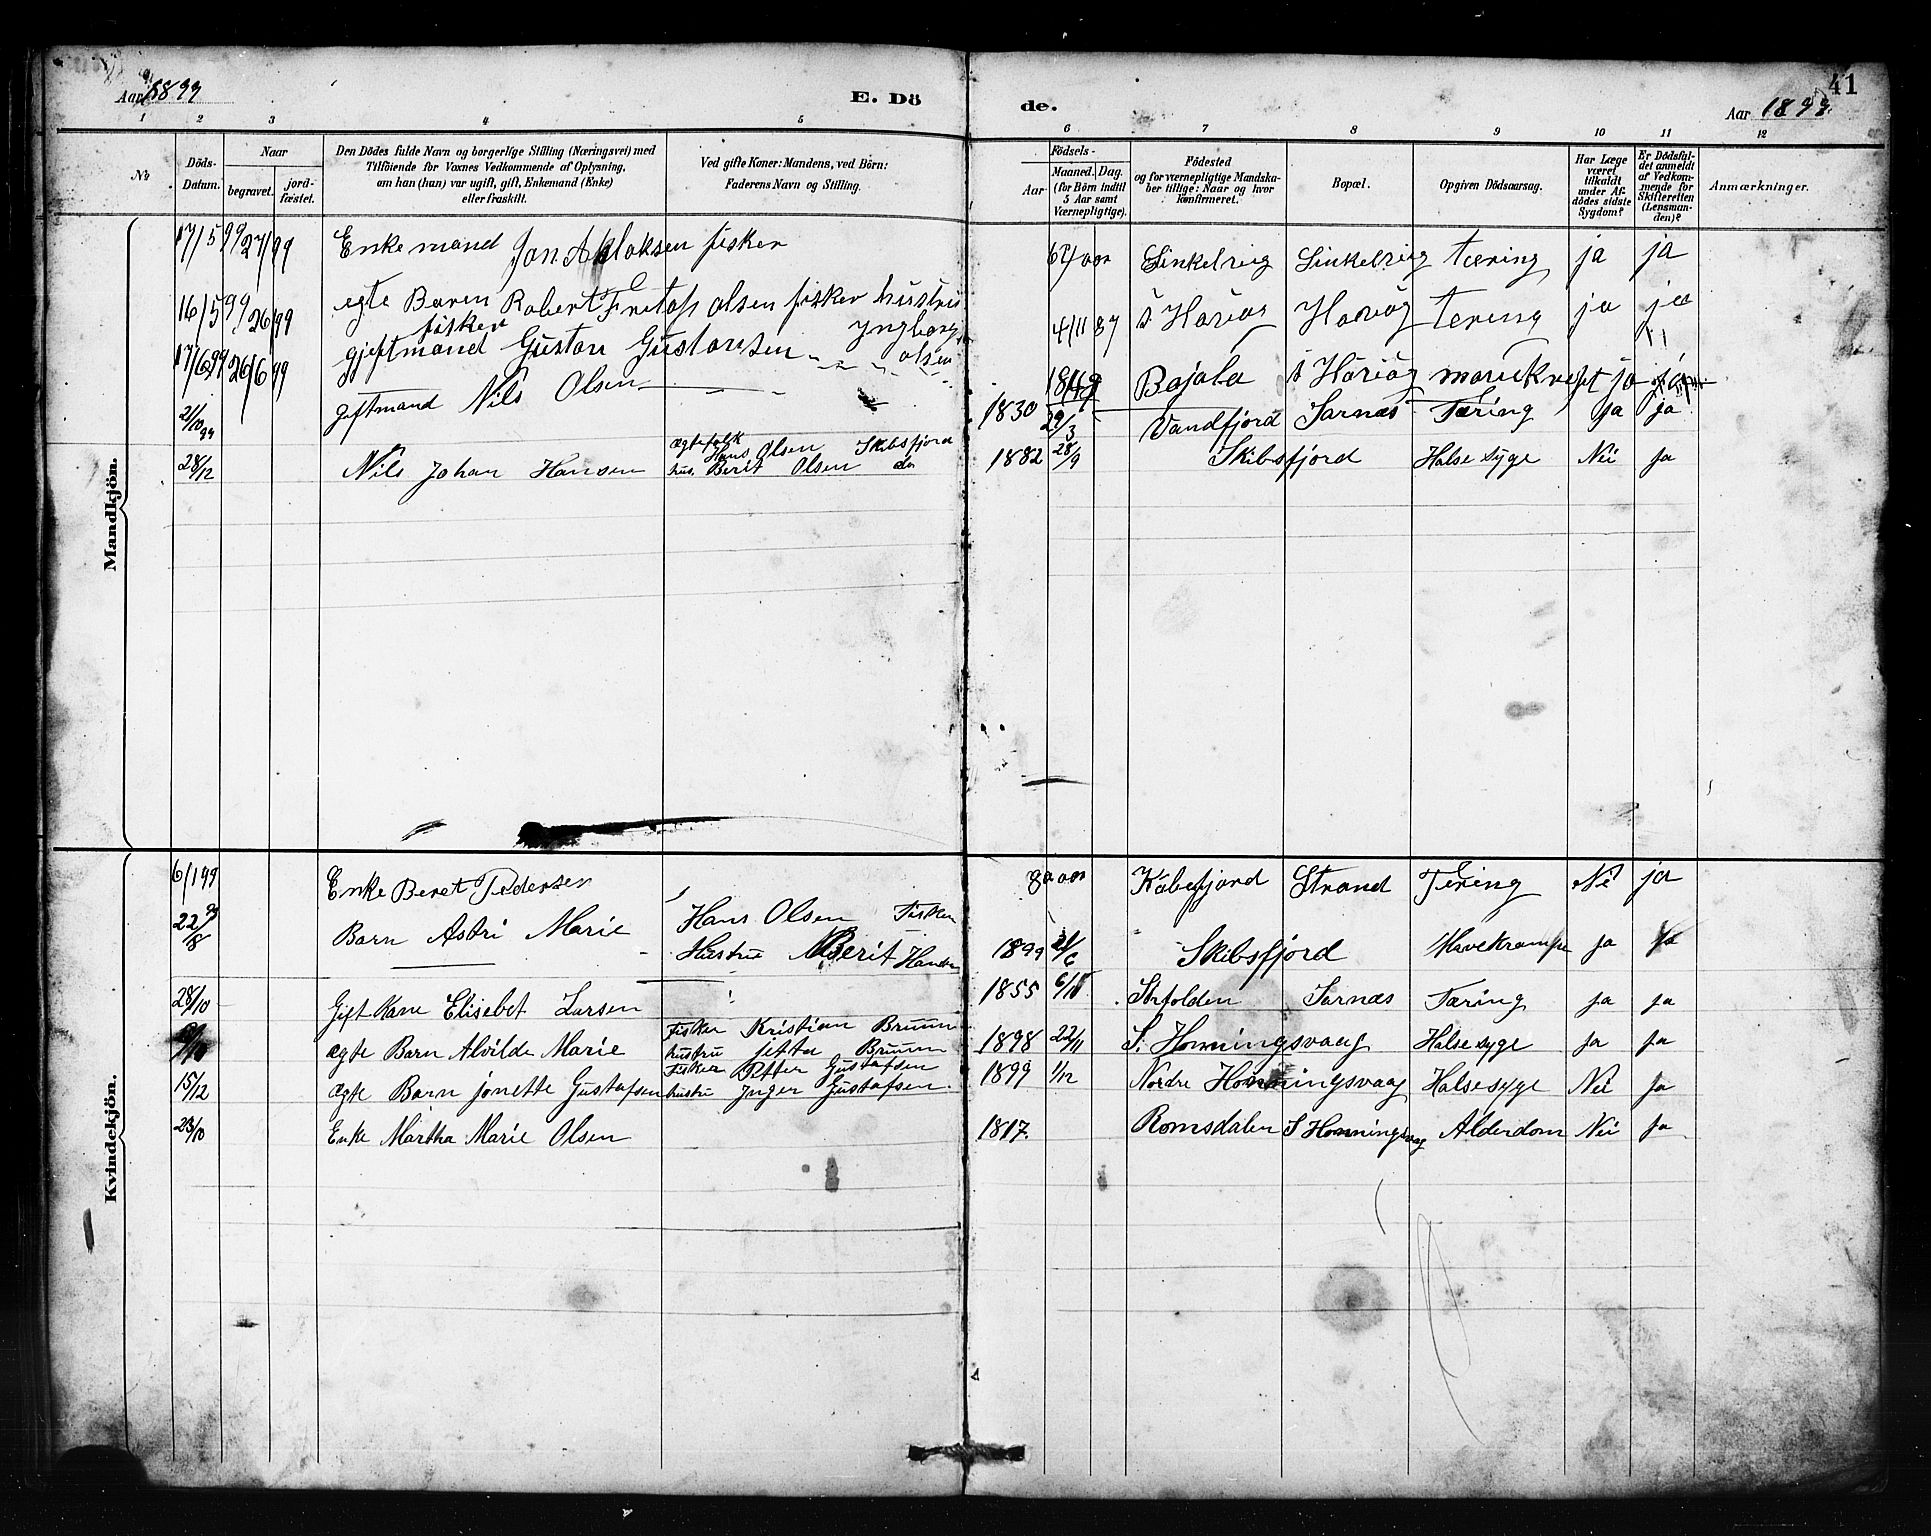 Aar 1899
E. Dö
de.
41
Aar 1899
1 2 3 4 5 6 7 8 9 10 11 12
No
Döds-Datum.
Naar
begravet.
jord-fæstet.
Den Dödes fulde Navn og borgerlige Stilling (Næringsvei) med
Tilföiende for Voxnes Vedkommende af Oplysning,
om han (hun) var ugift, gift, Enkemand (Enke)
eller fraskilt.
Ved gifte Koner: Mandens, ved Börn:
Faderens Navn og Stilling.
Födsels-
Aar
Maaned. Dag.
(for Börn indtil
5 Aar samt
Værnepligtige).
Födested
og for værnepligtige Mandska-
ber tillige: Naar og hvor
konfirmeret.
Bopæl.
Opgiven Dödsaarsag.
Har Læge
været
tilkaldt
under Af-
dödes sidste
Sygdom?
Er Dödsfal-
det anmeldt
af Vedkom-
mende for
Skifteretten
(Lensman-
den)?
Anmærkninger.
Mandkjön.
17/5 99 27/99 Enkemand Jon Aslaksen fisker aar Tæring ja ja
16/5 99 26/99 egte Baren Robert olsen fisker hustrü 4/11 87 Tering ja ja
fisker Yngborg
17/6 99 26/6 99 gjeftmand Güstav olsen ja
21/10 99 Giftmand Nils Olsen 1830 29/3 Vandfjord Sarnæs Tæring ja ja
ægtefolk
28/12 Nils Johan Hansen Hans Olsen Skibsfjord 1882 28/9 Skibsfjord Halsesyge Nei ja
hus. Berit Olsen do
Kvindekjön.
6/1 99 Enke Beret Pedersen 80 aar Kobefjord Strand Tering Nei ja
22/8 99 Barn Astri Marie Hans Olsen Fisker
Hustru Berit Hansen 1899 Skibsfjord Mavekrampe ja ja
28/10 Gift Kone Elisebet Larsen 1855 Sarnæs Tæring ja ja
ægte Barn Alvilde Marie Fisker Kristian Bruun 1898 22/11 S. Honningsvaag Halsesyge ja ja
hustru Jetta Bruun
15/12 ægte Barn Jonette Gustafsen Fisker Petter Gustafsen 1899 1/12 Nordre Honningsvaag Halsesyge Nei ja
hustru Inger Gustafsen.
23/10 Enke Martha Marie Olsen 1817. Romsdalen S Honningsvaag Alderdom Nei ja